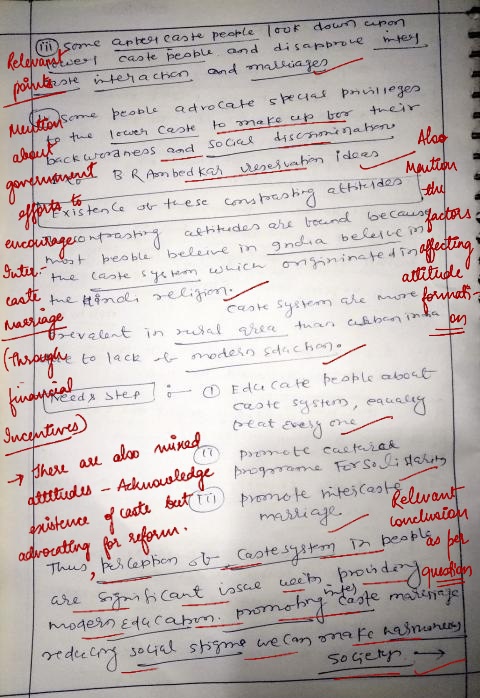 (iii) some apper caste people look down upon
lowers caste people and disapprove inter
caste interaction and marriages
Relevant
points
some people advocate special privileges
to the lower caste to make up for their
backwardness and social discrimination
B R Ambedkar reservation ideas
Mention
about
government
efforts to
encourage
Inter-
caste
Marriage
(through
financial
Incentives)
Also
Mention
the
factors
affecting
attitude
formati-
on
Existence of these constrasting attitudes
contrasting attitudes are bound because
most people beleive in India beleive in
the caste system which originated in
the Hindi religion.
caste system are more
revalent in rural area than urban india
to lack of modern sduction.
Needs step :- (i) Educate people about
caste system, equality
treat every one
(ii) promote
programe For Solidarity
(iii) promote intercaste
marriage
→ There are also mixed
attitudes - Acknowledge
existence of caste but
advocating for reform.
Relevant
conclusion
as per
question
Thus, perception of caste system in people
are significant issue with providery
modern Education. promoting inter caste marriage
reducing social stigma we can make harmoneous
Society.